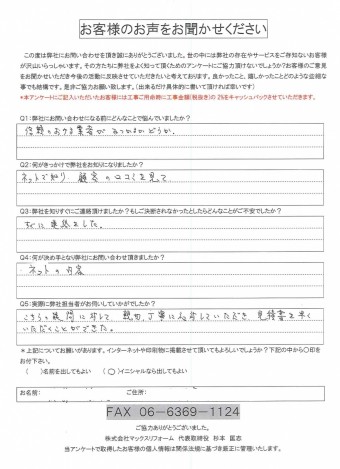 お客様のお声をお聞かせください
この度は弊社にお問い合わせを頂き誠にありがとうございました。世の中には弊社の存在やサービスをご存知ないお客様
が沢山いらっしゃいます。その方たちに弊社をよく知って頂くためのアンケートにご協力頂けないでしょうか?お客様のご意見
をお聞かせいただき今後の活動に反映させていただきたいと考えております。良かったこと、嬉しかったことどのような些細な
事でも結構です。是非ご協力お願い致します。(出来るだけ具体的に書いて頂ければ幸いです)
*本アンケートにご記入いただいたお客様には工事ご用命時に工事金額(税抜き)の 2%をキャッシュバックさせていただきます。
Q1:弊社にお問い合わせになる前にどんなことで悩んでいましたか?
信頼のおける業者がみつかるかどうか。
Q2:何がきっかけで弊社をお知りになりましたか?
ネットで知り 顧客の口コミを見て
Q3:弊社を知りすぐにご連絡頂けましたか?もしご決断されなかったとしたらどんなことがご不安でしたか?
すぐに連絡をした。
Q4:何が決め手となり弊社にお問い合わせ頂きましたか?
ネットの内容
Q5:実際に弊社担当者がお伺いしていかがでしたか?
こちらの質問に対して 親切、丁寧に対応していただき、見積書も早く
いただくことができた。
*上記についてお願いがあります。インターネットや印刷物に掲載させて頂いてもよろしいでしょうか?下記の中から○印を
お付け下さい。
( )名前を出してもよい (○)イニシャルなら出してもよい
お名前: ご住所:
FAX 06-6369-1124
ご協力ありがとうございました。
株式会社マックスリフォーム 代表取締役 杉本 匡志
当アンケートで取得したお客様の個人情報は関係法規に基づき厳正に管理いたします。